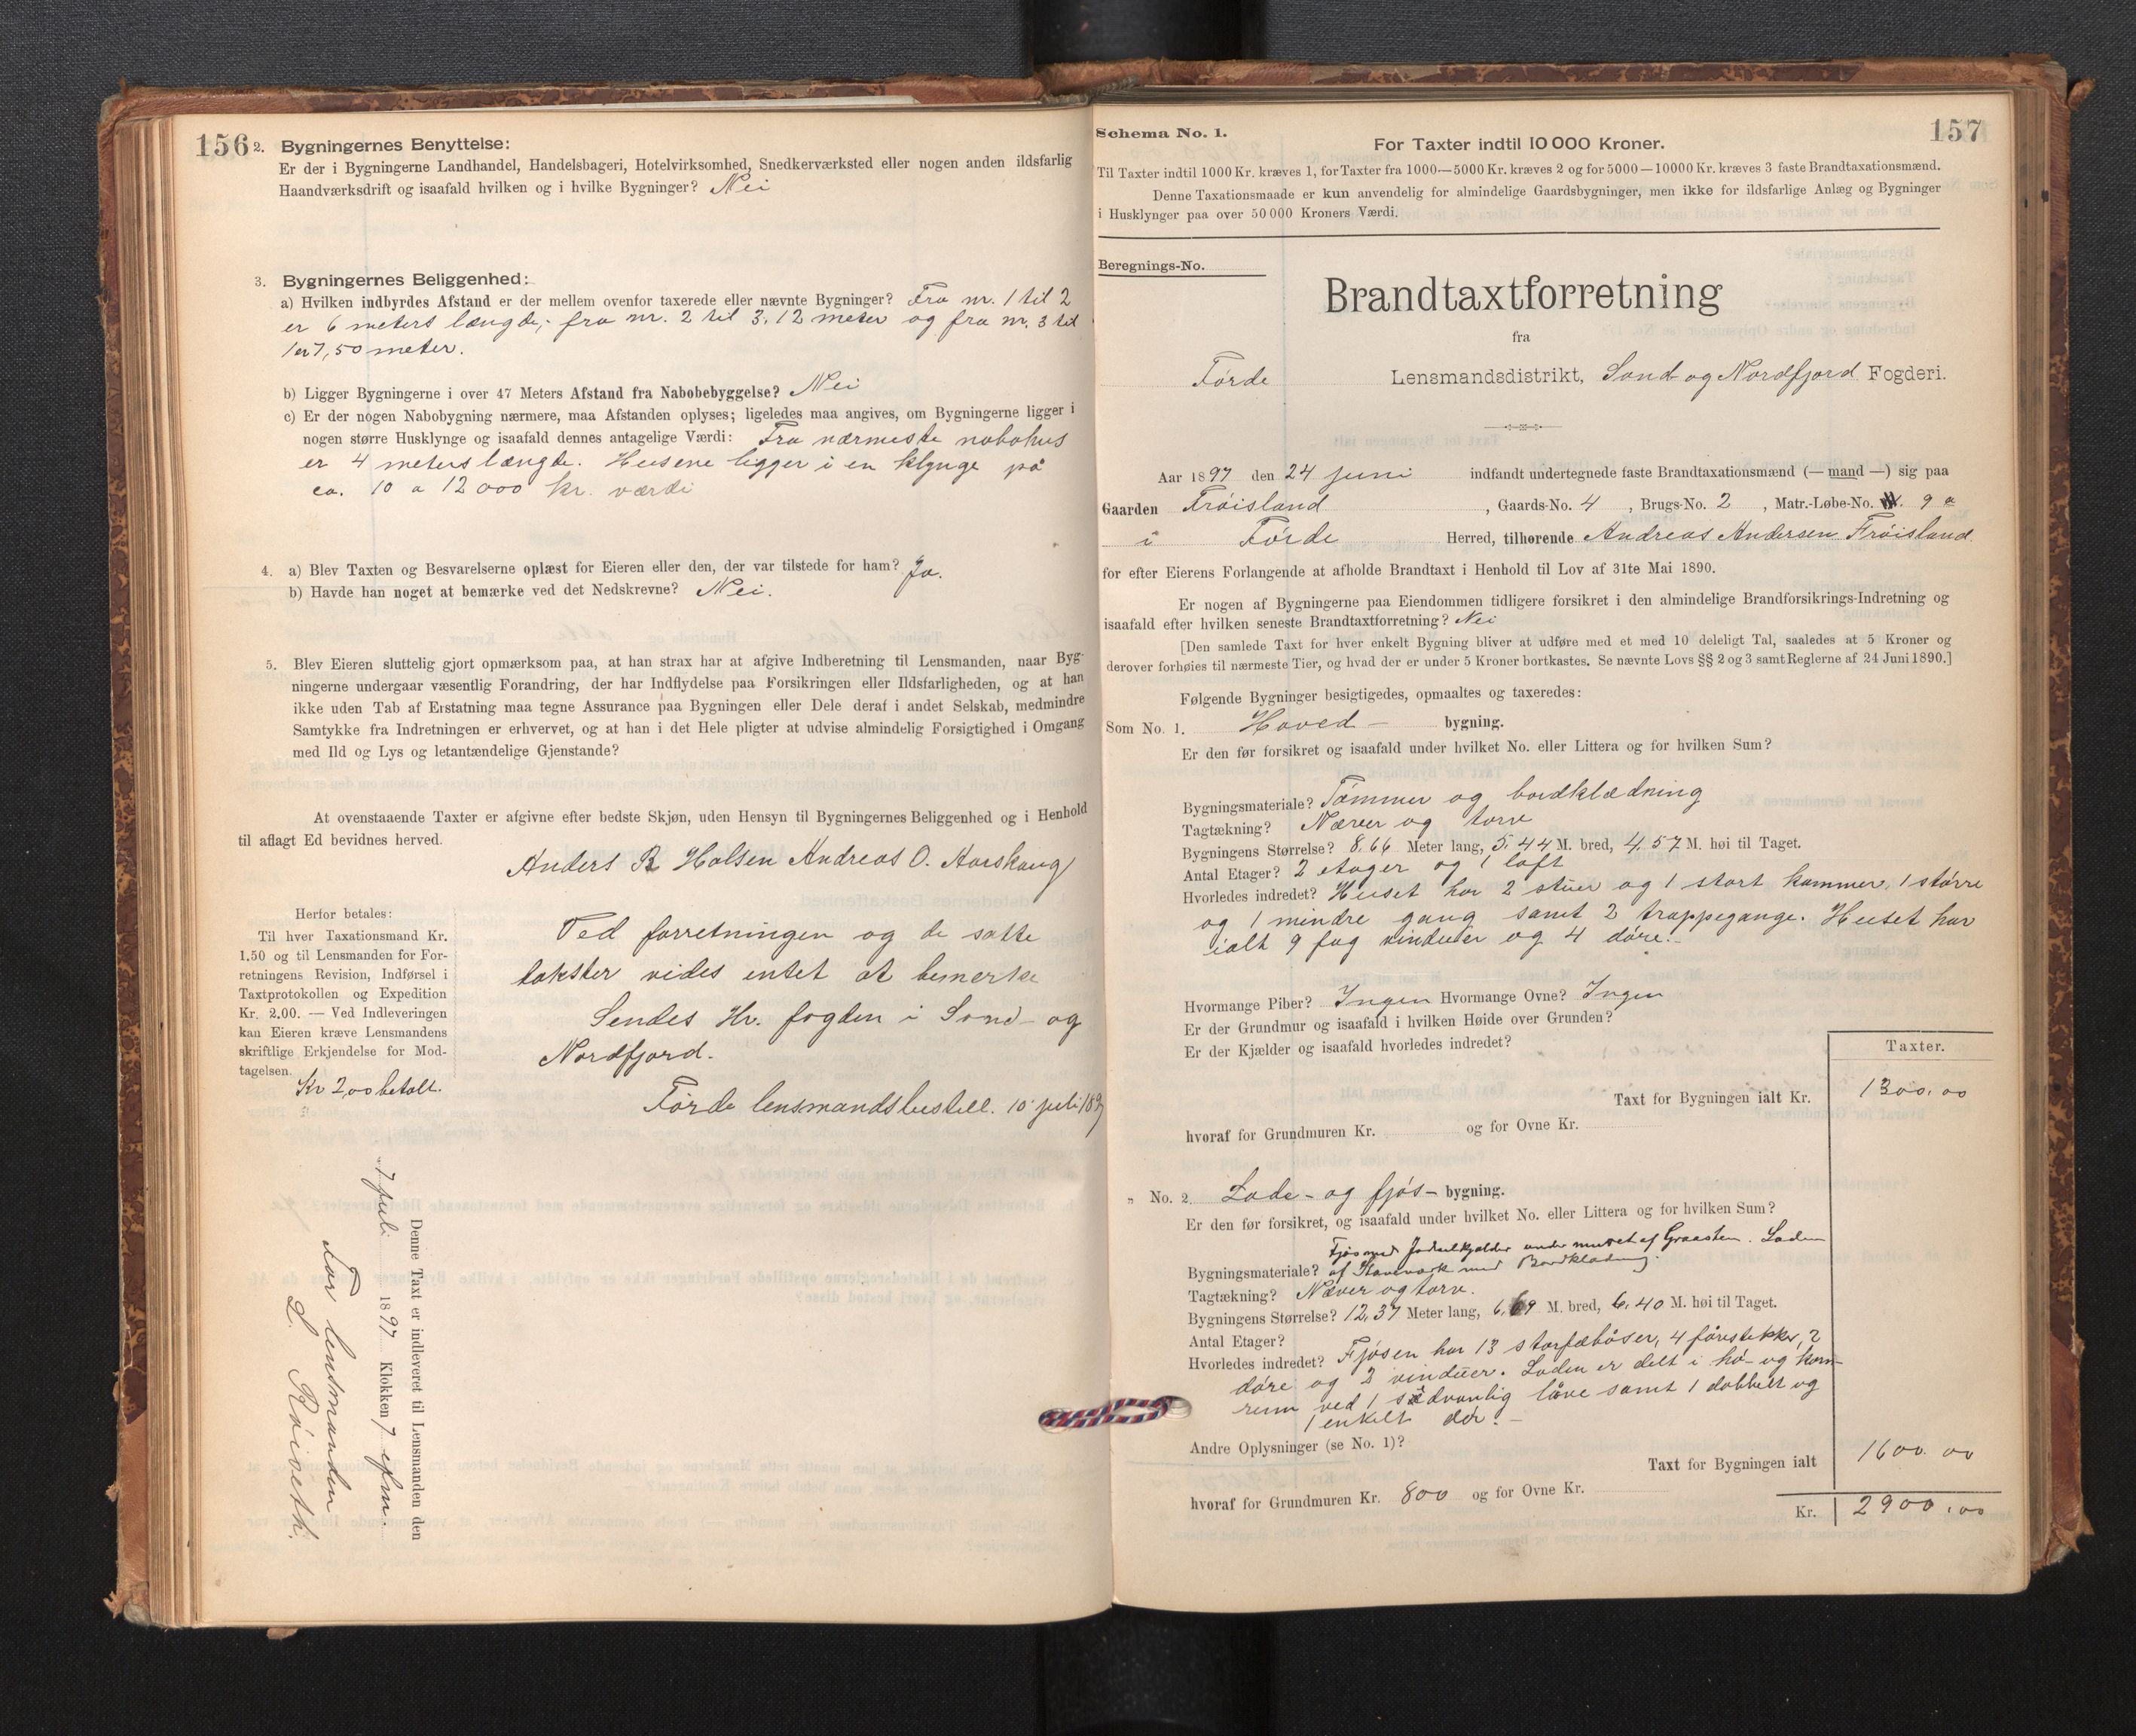 156
2. Bygningernes Benyttelse:
Er der i Bygningerne Landhandel, Handelsbageri, Hotelvirksomhed, Snedkerværksted eller nogen anden ildsfarlig
Haandværksdrift og isaafald hvilken og i hvilke Bygninger? Nei
3. Bygningernes Beliggenhed:
a) Hvilken indbyrdes Afstand er der mellem ovenfor taxerede eller nævnte Bygninger? Fra nr. 1 til 2
er 6 meters længde; fra nr. 2 til 3, 12 meter og fra nr. 3 til
1 er 7,50 meter.
b) Ligger Bygningerne i over 47 Meters Afstand fra Nabobebyggelse? Nei
c) Er der nogen Nabobygning nærmere, maa Afstanden oplyses; ligeledes maa angives, om Bygningerne ligger i
nogen større Husklynge og isaafald dennes antagelige Værdi: Fra nærmeste nabohus
er 4 meters længde. Husene ligger i en klynge på
ca. 10 a 12000 kr. værdi
4. a) Blev Taxten og Besvarelserne oplæst for Eieren eller den, der var tilstede for ham? Ja.
b) Havde han noget at bemærke ved det Nedskrevne? Nei.
5. Blev Eieren sluttelig gjort opmærksom paa, at han strax har at afgive Indberetning til Lensmanden, naar Byg-
ningerne undergaar væsentlig Forandring, der har Indflydelse paa Forsikringen eller Ildsfarligheden, og at han
ikke uden Tab af Erstatning maa tegne Assurance paa Bygningen eller Dele deraf i andet Selskab, medmindre
Samtykke fra Indretningen er erhvervet, og at han i det Hele pligter at udvise almindelig Forsigtighed i Omgang
med Ild og Lys og letantændelige Gjenstande?
At ovenstaaende Taxter er afgivne efter bedste Skjøn, uden Hensyn til Bygningernes Beliggenhed og i Henhold
til aflagt Ed bevidnes herved.
Anders R Halsen Andreas O. Karskaug
Herfor betales:
Til hver Taxationsmand Kr.
1.50 og til Lensmanden for For-
retningens Revision, Indførsel i
Taxtprotokollen og Expedition
Kr. 2.00. — Ved Indleveringen
kan Eieren kræve Lensmandens
skriftlige Erkjendelse for Mod-
tagelsen.
Kr 2,00 betalt.
Ved forretningen og de satte
takster vides intet at bemerke
Sendes Hr. fogden i Sønd- og
Nordfjord.
Førde lensmandsbestill. 10 juli 1897
Denne Taxt er indleveret til Lensmanden den
7 juli 1897 Klokken 7 efm.
For lensmanden
L. Røiveth.
157
Schema No. 1.
For Taxter indtil 10 000 Kroner.
Til Taxter indtil 1000 Kr. kræves 1, for Taxter fra 1000—5000 Kr. kræves 2 og for 5000—10000 Kr. kræves 3 faste Brandtaxationsmænd.
Denne Taxationsmaade er kun anvendelig for almindelige Gaardsbygninger, men ikke for ildsfarlige Anlæg og Bygninger
i Husklynger paa over 50 000 Kroners Værdi.
Beregnings-No.
Brandtaxtforretning
fra
Førde Lensmandsdistrikt, Sønd og Nordfjord Fogderi.
Aar 1897 den 24 juni indfandt undertegnede faste Brandtaxationsmænd (— mand —) sig paa
Gaarden Frøisland, Gaards-No. 4, Brugs-No. 2, Matr.-Løbe-No. 9 a
i Førde Herred, tilhørende Andreas Andersen Frøisland
for efter Eierens Forlangende at afholde Brandtaxt i Henhold til Lov af 31te Mai 1890.
Er nogen af Bygningerne paa Eiendommen tidligere forsikret i den almindelige Brandforsikrings-Indretning og
isaafald efter hvilken seneste Brandtaxtforretning? Nei
[Den samlede Taxt for hver enkelt Bygning bliver at udføre med et med 10 deleligt Tal, saaledes at 5 Kroner og
derover forhøies til nærmeste Tier, og hvad der er under 5 Kroner bortkastes. Se nævnte Lovs §§ 2 og 3 samt Reglerne af 24 Juni 1890.]
Følgende Bygninger besigtigedes, opmaaltes og taxeredes:
Som No. 1. Hoved- bygning.
Er den før forsikret og isaafald under hvilket No. eller Littera og for hvilken Sum?
Bygningsmateriale? Tømmer og bordklædning
Tagtækning? Næver og torv
Bygningens Størrelse? 8,66 Meter lang, 5,44 M. bred, 4,57 M. høi til Taget.
Antal Etager? 2 etager og 1 loft
Hvorledes indredet? Huset har 2 stuer og 1 stort kammer, 1 større
og 1 mindre gang samt 2 trappegange. Huset har
ialt 9 fag vinduer og 4 døre.-
Hvormange Piber? Ingen Hvormange Ovne? Ingen
Er der Grundmur og isaafald i hvilken Høide over Grunden?
Er der Kjælder og isaafald hvorledes indredet?
Taxter.
Taxt for Bygningen ialt Kr. 1300.00
hvoraf for Grundmuren Kr. og for Ovne Kr.
„ No. 2. Lade- og fjøs- bygning.
Er den før forsikret, og isaafald under hvilket No. eller Littera og for hvilken Sum?
Fjøs med Jødselkjælder under muret af Graasten. Laden
Bygningsmateriale? af Stavværk med Bordklædning.
Tagtækning? Næver og torv.
Bygningens Størrelse? 12,37 Meter lang, 6,69 M. bred, 6,40 M. høi til Taget.
Antal Etager?
Hvorledes indredet? Fjøsen har 13 storfæbåser, 4 fårestekker, 2
døre og 2 vinduer. Laden er delt i hø- og korn-
rum ved 1 sædvanlig låve samt 1 dobbelt og
1 enkelt dør.-
Andre Oplysninger (se No. 1)?
Taxt for Bygningen ialt 1600.00
hvoraf for Grundmuren Kr. 800 og for Ovne Kr.
Kr. 2900.00